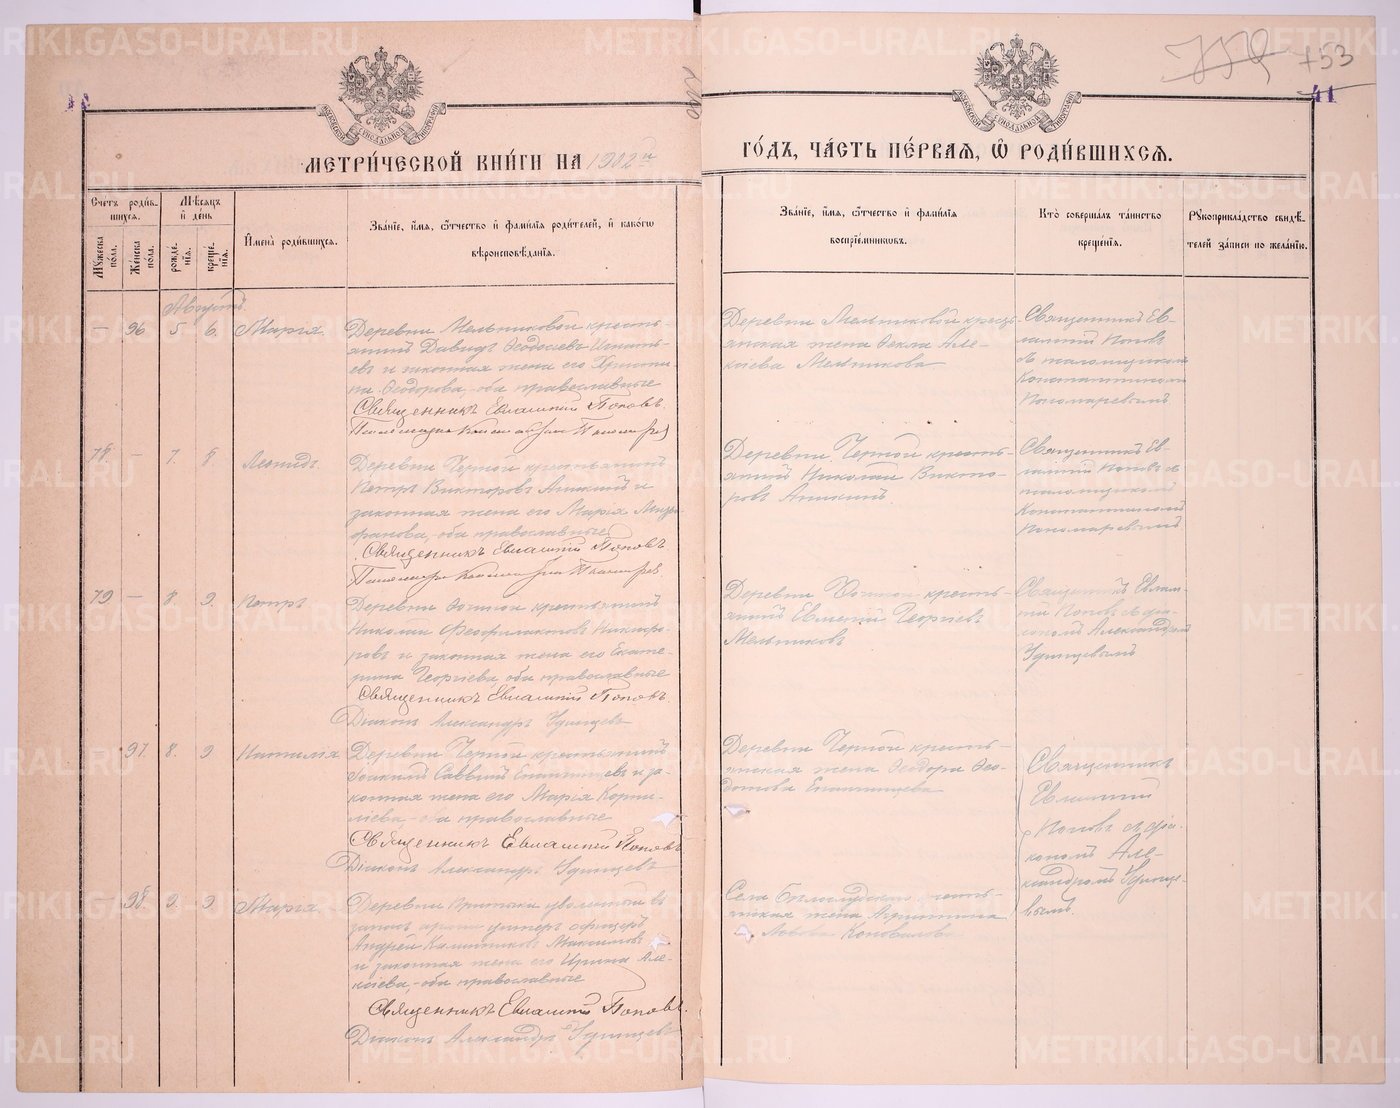 МЕТРИ́ЧЕСКОЙ КНИ́ГИ НА 1902й
ГО́ДЪ, ЧА́СТЬ ПЕ́РВАѦ, Ѡ РОДИ́ВШИХСѦ.
753
41
Сче́тъ роди́вшихсѧ.
Мѣ́сѧцъ и҆ де́нь
Мꙋ́жеска по́ла.
Же́нска по́ла.
рожде́нїѧ.
креще́нїѧ.
И҆мена̀ роди́вшихсѧ.
Зва́нїе, и҆́мѧ, ѻ҆́тчество и҆ фами́лїѧ роди́телей, и҆ како́гѡ вѣроисповѣ́данїѧ.
Зва́нїе, и҆́мѧ, ѻ҆́тчество и҆ фами́лїѧ воспрїе́мникѡвъ.
Кто̀ соверша́лъ та́инство креще́нїѧ.
Рꙋкоприкла́дство свидѣ́телей за́писи по жела́нїю.
Августъ.
— 96 5 6. Марія.
Деревни Мельниковой кресть-
янинъ Давидъ Ѳеодосіевъ Игнать-
евъ и законная жена его Христи-
на Ѳеодорова, оба православные
Священникъ Евлампій Поповъ.
Деревни Мельниковой кресть-
янская жена Ѳекла Але-
ксіева Мельникова
Священникъ Ев-
лампій Поповъ
съ псаломщикомъ
Константиномъ
Пономаревымъ.
78. — 7. 8. Леонидъ.
Деревни Черной крестьянинъ
Петръ Викторовъ Аникинъ и
законная жена его Марія
оба православные
Священникъ Евлампій Поповъ
Деревни Черной кресть-
янинъ Николай Викто-
ровъ Аникинъ.
Священникъ Ев-
лампій Поповъ съ
псаломщикомъ
Константиномъ
Пономаревымъ
79 — 8. 9. Петръ
Деревни крестьянинъ
Николай Феофилактовъ Никифо-
ровъ и законная жена его Екате-
рина Георгіева, оба православные
Священникъ Евлампій Поповъ.
Діаконъ Александръ Удинцевъ
Деревни кресть-
янинъ Евгеній Георгіевъ
Мельниковъ
Священникъ Евлам-
пій Поповъ съ діа-
кономъ Александромъ
Удинцевымъ
97. 8. 9. Наталія
Деревни Черной крестьянинъ
Саввинъ Епанчинцевъ и за-
конная жена его Марія Корни-
ліева, оба православные
Священникъ Евлампій Поповъ
Діаконъ Александръ Удинцевъ
Деревни Черной кресть-
янская жена Ѳеодора Ѳео-
дотова Епанчинцева
Священникъ
Евлампій
Поповъ съ діа-
кономъ Але-
ксандромъ Удинце-
вымъ.
— 98. 9. 9. Марія.
Деревни уволенный въ
запасъ арміи унтеръ офицеръ
Андрей Максимовъ
и законная жена его Ирина Але-
ксіева, оба православные
Священникъ Евлампій Поповъ.
Діаконъ Александръ Удинцевъ
Села Бѣлослудскаго кресть-
янская жена Агриппина
Львова Коновалова
METRIKI.GASO-URAL.RU